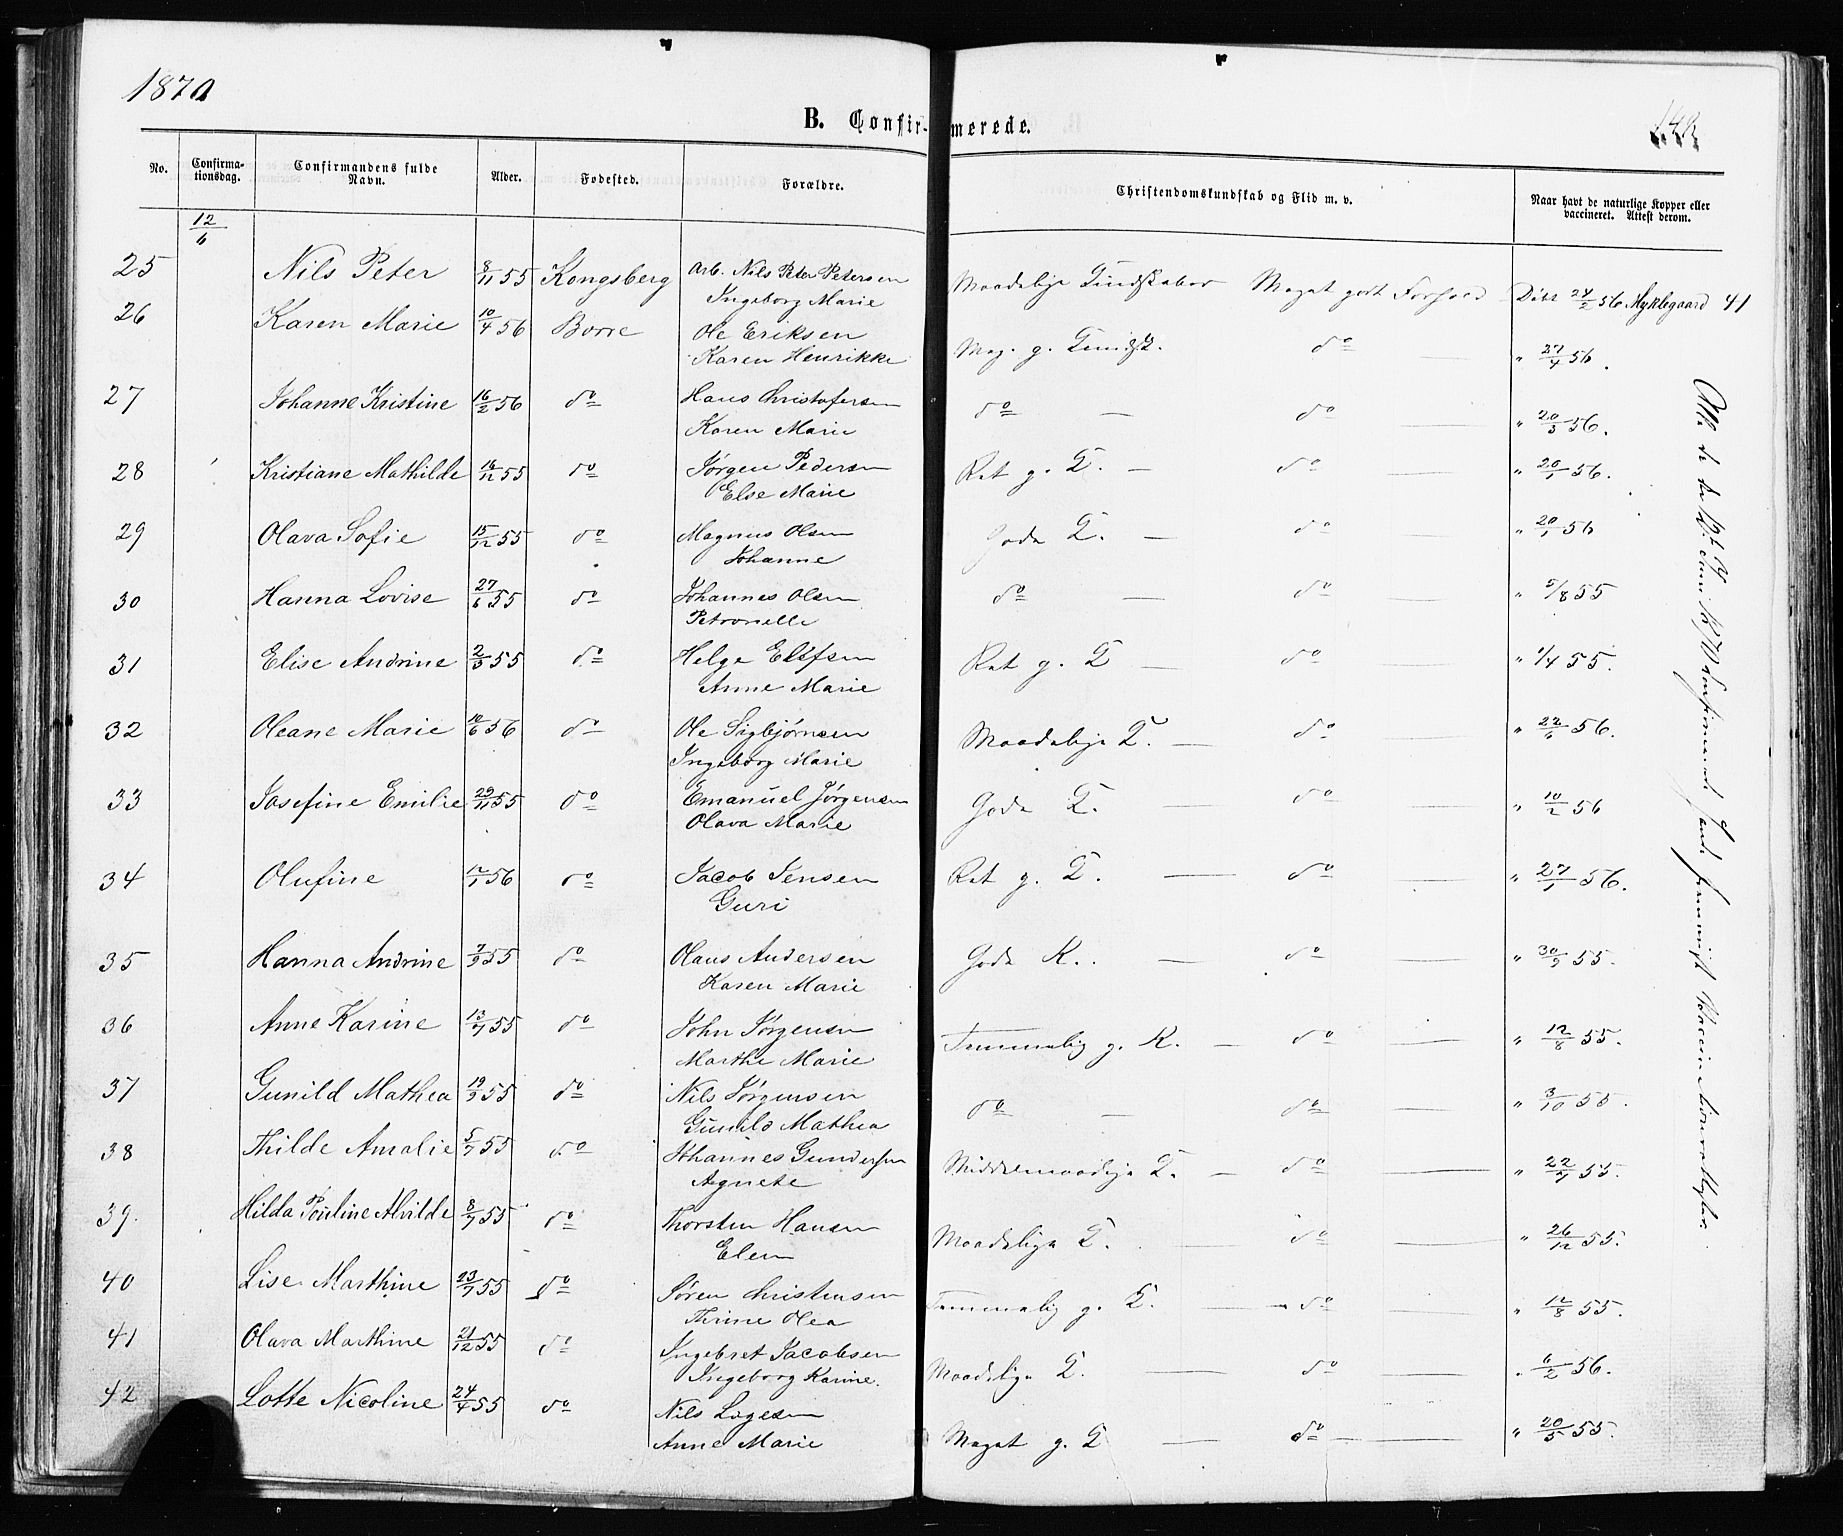 1870
B. Confirmerede.
No.
Confirmationsdag.
Confirmandens fulde Navn.
Alder.
Fodested.
Forældre.
Christendomskundskab og Flid m. v.
Naar havt de naturlige Kopper eller vaccineret. Attest derom.
12/6
25 Nils Peter 8/11 55 Kongsberg Arb. Nils Peter Petersen Maadelige Kundskaber Meget godt Forhold Døbt 24/2 56 Myklegaard 41
Ingeborg Marie
26 Karen Marie 10/4 56 Borre Ole Eriksen Meg. g. Kundsk. do " 27/4 56.
Karen Henrikke
27 Johanne Kristine 16/2 56 do Hans Christofersen do — do " 20/3 56.
Karen Marie
28 Kristiane Mathilde 16/12 55 do Jørgen Pedersen Ret g. K. — do " 20/1 56.
Else Marie
29 Olava Sofie 15/12 55 do Magnus Olsen Gode K. — do " 20/1 56
Johanne
30 Hanna Lovise 27/6 55 do Johannes Olsen do — do " 5/8 55
Petronelle
31 Elise Andrine 2/3 55 do Helge Ellefsen Ret g. K — do " 1/4 55.
Anne Marie
32 Oleane Marie 10/6 56 do Ole Sigbjørnsen Maadelige K. — do " 22/6 56.
Ingeborg Marie
33 Josefine Emilie 29/11 55 do Emanuel Jørgensen Gode K. — do " 10/2 56
Olava Marie
34 Olufine 12/1 56 do Jacob Jensen Ret g. K. — do " 27/1 56.
Guri
35 Hanna Andrine 7/9 55 do Olaus Andersen Gode K. — do " 30/9 55.
Karen Marie
36 Anne Karine 13/7 55 do John Jørgensen Temmelig g. K. — do " 12/8 55.
Marthe Marie
37 Gunild Mathea 19/9 55 do Nils Jørgensen do — do " 3/10 55.
Gunild Mathea
38 Thilde Amalie 5/7 55 do Johannes Gundersen Middelmaadige K. — do " 22/7 55.
Agnete
39. Hilda Pouline Alvilde 8/7 55 do Thorsten Hansen Maadelige K. — do " 26/12 55.
Elen
40 Lise Marthine 23/7 55 do Søren Christensen Temmelig g. K. — do " 12/8 55.
Thrine Olea
41 Olava Marthine 21/12 55 do Ingebret Jacobsen Maadelige K. — do " 6/2 56.
Ingeborg Karine.
42 Lotte Nicoline 24/4 55 do Nils Lagesen Meget g. K — do — " 20/5 55.
Anne Marie
Alle de